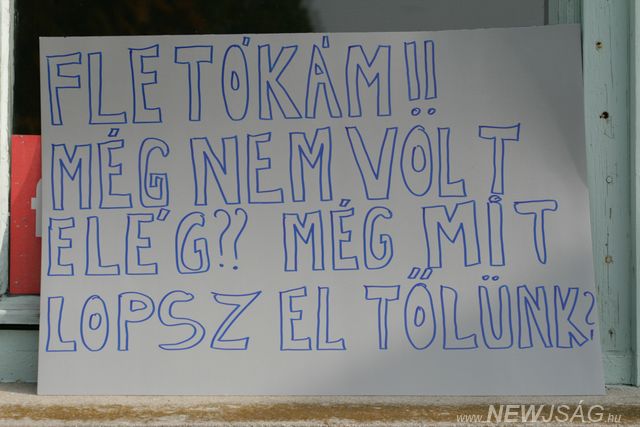 FLETÓKÁM!!
MÉG NEM VÖLT
ELÉG?? MÉG MIT
LOPSZ EL TŐLÜNK?
www.NEWJSÁG.hu